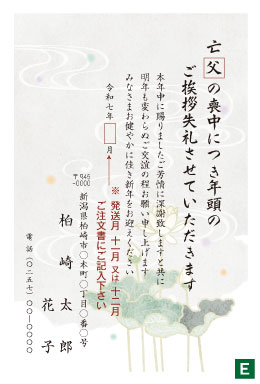 亡父の喪中につき年頭の
ご挨拶失礼させていただきます
本年中に賜りましたご芳情に深謝致しますと共に
明年も変わらぬご交誼の程お願い申し上げます
みなさまお健やかに佳き新年をお迎えください
令和七年 月
※ 発送月 十一月 又は 十二月
ご注文書にご記入下さい
〒945
-0000
新潟県柏崎市〇木町〇丁目〇番〇号
柏崎 太郎
花子
電話(〇二五七)〇〇-〇〇〇〇
E